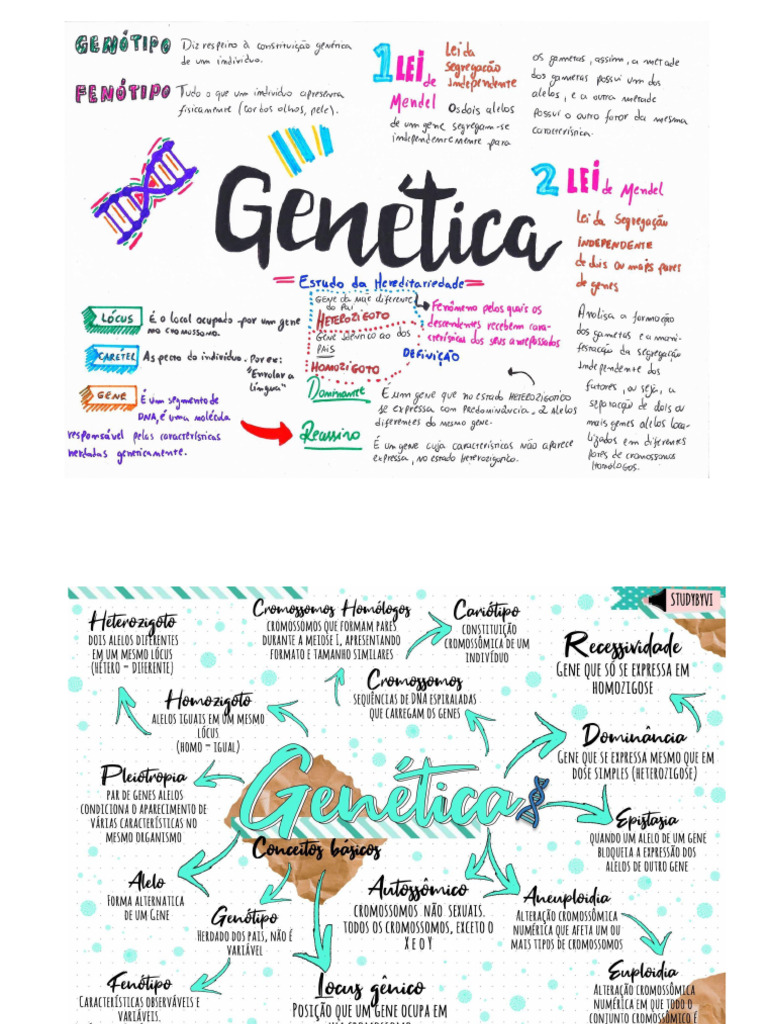 GENÓTIPO
Diz respeito à constituição genética
de um indivíduo.
FENÓTIPO
Tudo o que um indivíduo apresenta
fisicamente (cor dos olhos, pele).
1 LEI de
Mendel
Lei da
Segregação
Independente
Os dois alelos
de um gene segregam-se
independentemente para
os gametas, assim, a metade
dos gametas possui um dos
alelos, e a outra metade
possui o outro fator da mesma
característica.
2 LEI de Mendel
Lei da Segregação
INDEPENDENTE
de dois ou mais pares
de genes
Analisa a formação
dos gametas e a mani-
festação da segregação
independente dos
fatores, ou seja, a
separação de dois ou
mais genes alelos loca-
lizados em diferentes
pares de cromossomos
homólogos.
Genética
Estudo da Hereditariedade
LÓCUS
É o local ocupado por um gene
no cromossomo.
CARÉTEL
Aspecto do indivíduo. Por ex:
"Enrolar a
língua"
GENE
É um segmento de
DNA, é uma molécula
responsável pelas características
herdadas geneticamente.
GENE da mãe diferente
do Pai
HETEROZIGOTO
GENE ao dos
PAIS
HOMOZIGOTO
Fenômeno pelos quais os
descendentes recebem cara-
cterísticas dos seus antepassados
DEFINIÇÃO
Dominante
É um gene que no estado HETEROZIGÓTICO
se expressa com predominância. 2 Alelos
diferentes do mesmo gene.
Recessivo
É um gene cuja características não aparece
expressa, no estado heterozigótico.
STUDYBYVI
Heterozigoto
DOIS ALELOS DIFERENTES
EM UM MESMO LÓCUS
(HÉTERO = DIFERENTE)
Cromossomos Homólogos
CROMOSSOMOS QUE FORMAM PARES
DURANTE A MEIOSE I, APRESENTANDO
FORMATO E TAMANHO SIMILARES
Cariótipo
CONSTITUIÇÃO
CROMOSSÔMICA DE UM
INDIVÍDUO
Recessividade
GENE QUE SÓ SE EXPRESSA EM
HOMOZIGOSE
Homozigoto
ALELOS IGUAIS EM UM MESMO
LÓCUS
(HOMO = IGUAL)
Cromossomos
SEQUÊNCIAS DE DNA ESPIRALADAS
QUE CARREGAM OS GENES
Dominância
GENE QUE SE EXPRESSA MESMO QUE EM
DOSE SIMPLES (HETEROZIGOSE)
Pleiotropia
PAR DE GENES ALELOS
CONDICIONA O APARECIMENTO DE
VÁRIAS CARACTERÍSTICAS NO
MESMO ORGANISMO
Genética
Conceitos básicos
Epistasia
QUANDO UM ALELO DE UM GENE
BLOQUEIA A EXPRESSÃO DOS
ALELOS DE OUTRO GENE
Alelo
FORMA ALTERNATICA
DE UM GENE
Genótipo
HERDADO DOS PAIS, NÃO É
VARIÁVEL
Autossômico
CROMOSSOMOS NÃO SEXUAIS.
TODOS OS CROMOSSOMOS, EXCETO O
X E O Y
Aneuploidia
ALTERAÇÃO CROMOSSÔMICA
NUMÉRICA QUE AFETA UM OU
MAIS TIPOS DE CROMOSSOMOS
Fenótipo
CARACTERÍSTICAS OBSERVÁVEIS E
VARIÁVEIS.
Locus gênico
POSIÇÃO QUE UM GENE OCUPA EM
Euploidia
ALTERAÇÃO CROMOSSÔMICA
NUMÉRICA EM QUE TODO O
CONJUNTO CROMOSSÔMICO É